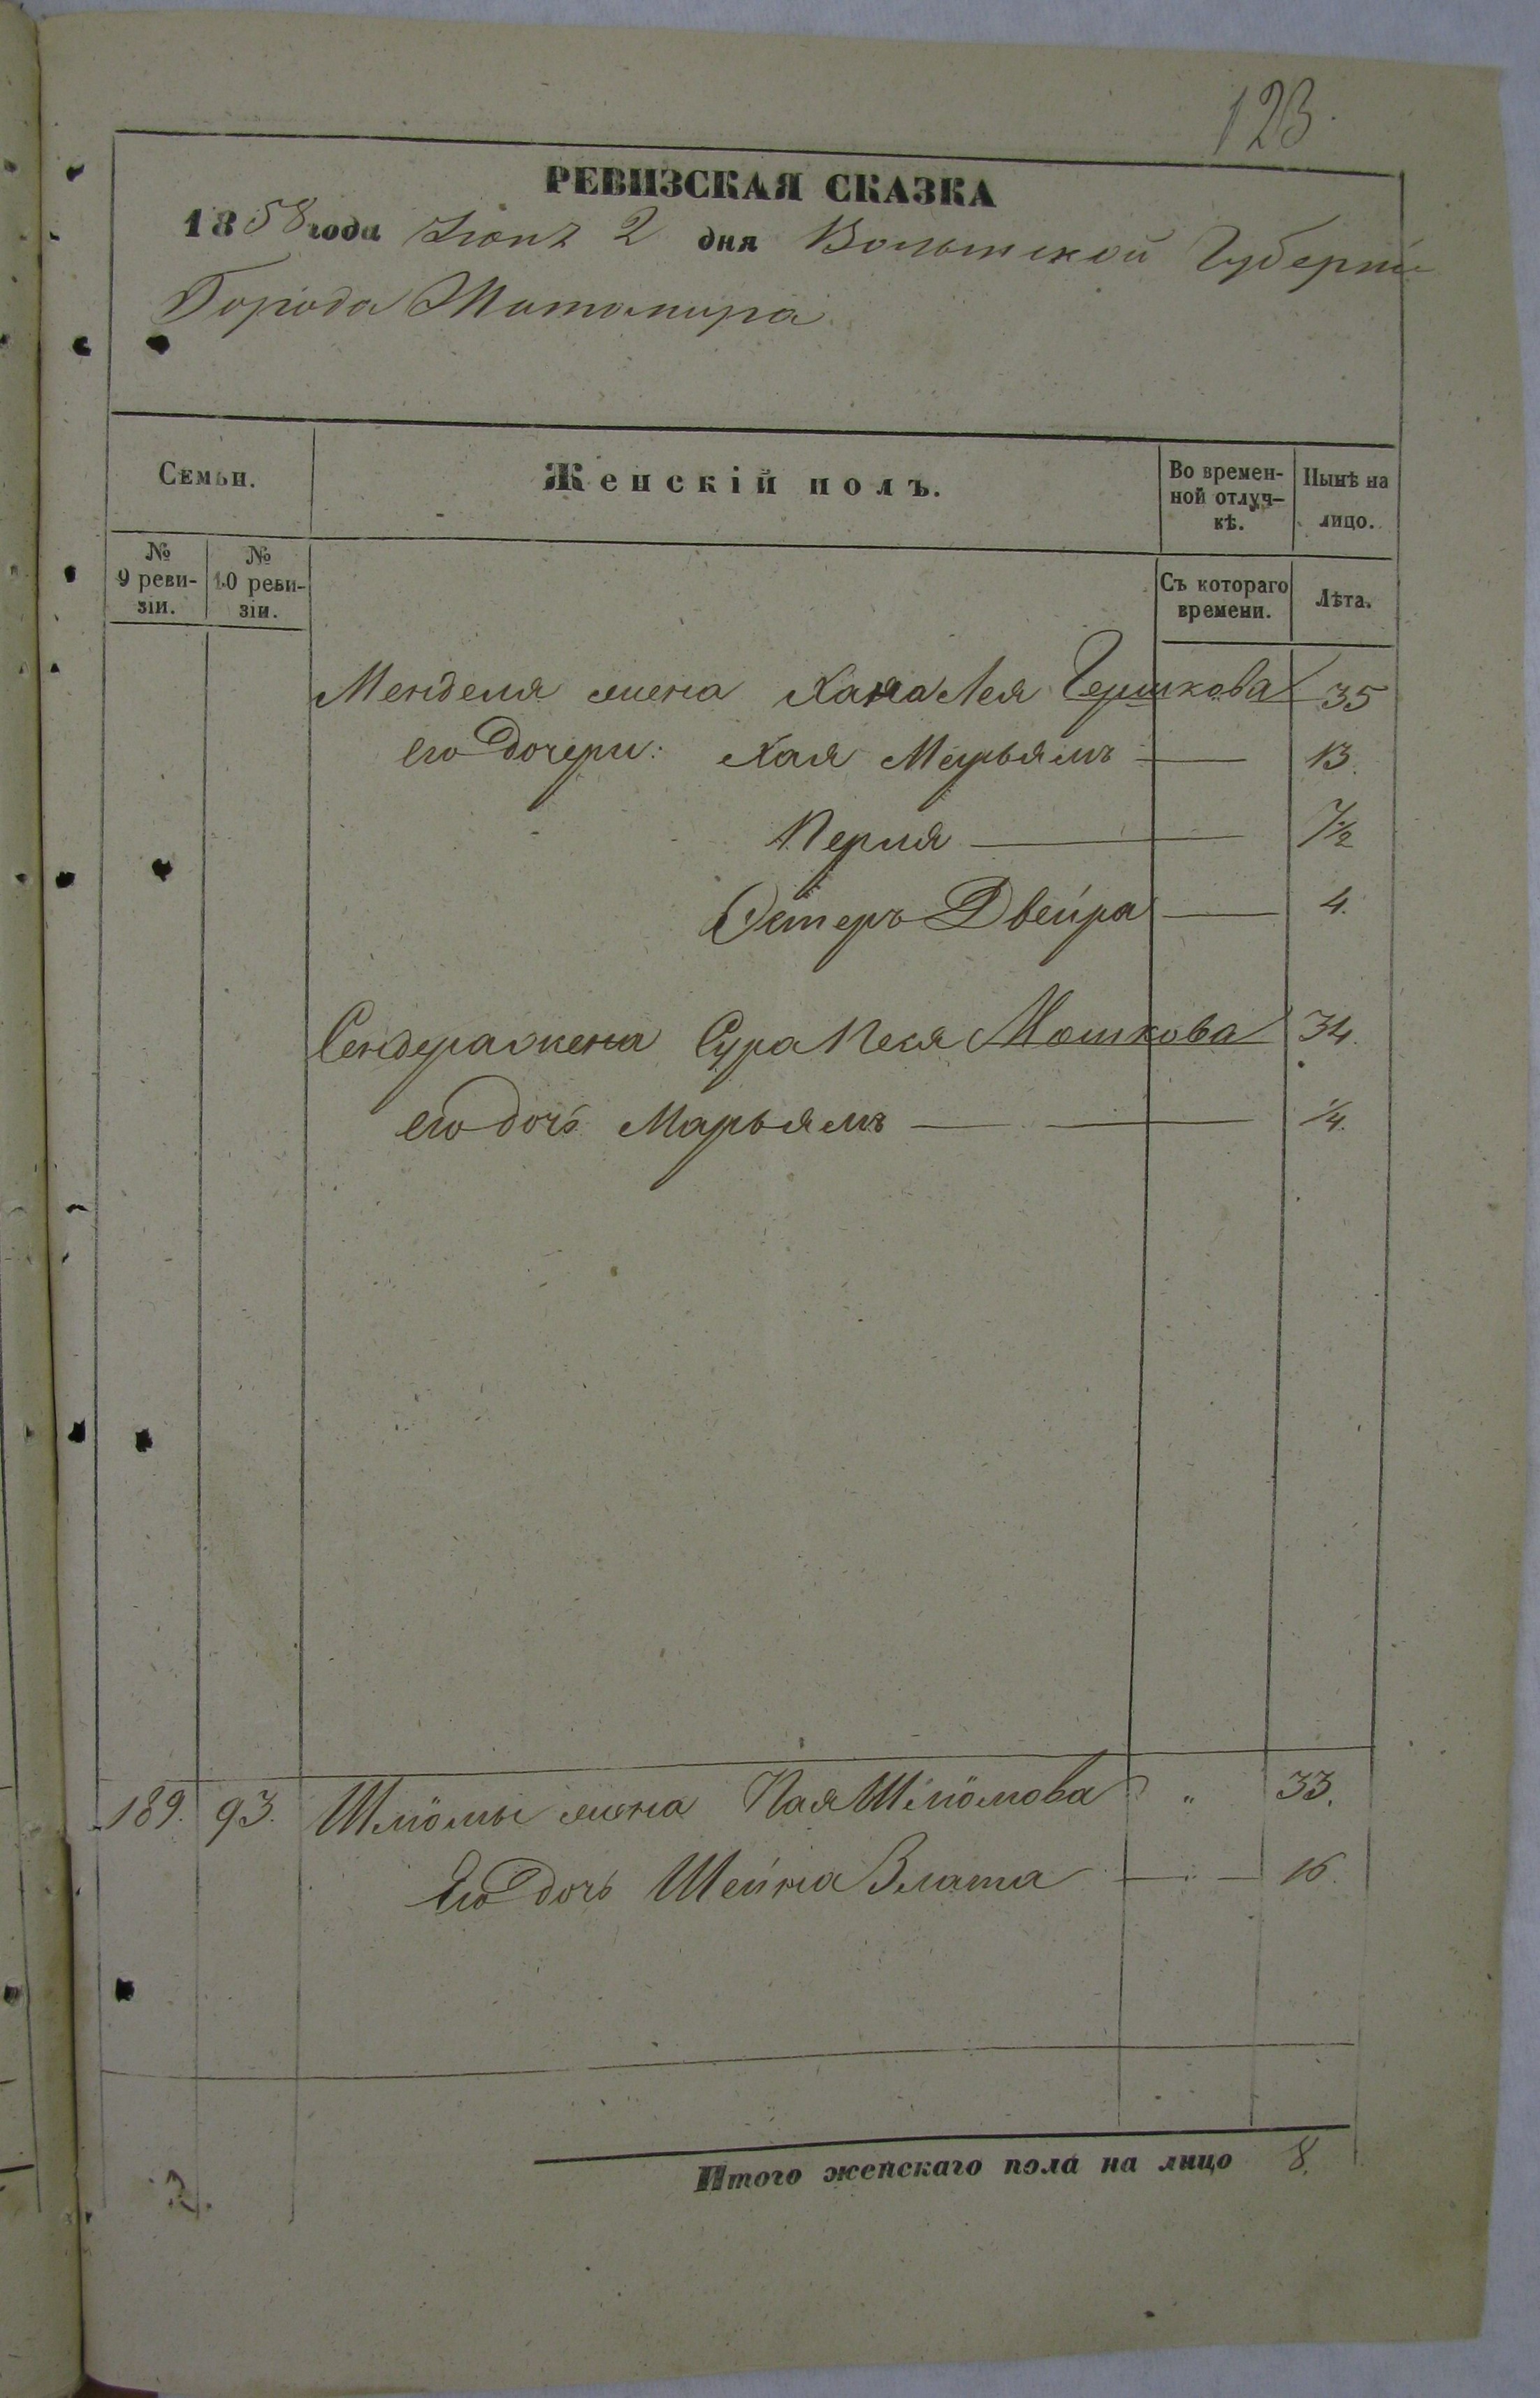 123.
РЕВИЗСКАЯ СКАЗКА
1858 года Іюня 2 дня Волынской Губерніи
Города Житомира
Семьи.
Женскій полъ.
Во времен-
ной отлуч-
кѣ.
Нынѣ на
лицо.
№
9 реви-
зіи.
№
10 реви-
зіи.
Съ котораго
времени.
Лѣта.
Менделя жена Хана Лея Гершкова 35
его дочери: Хая Меръямъ — 13.
Перля — 7½
Эстеръ Двейра — 4.
Сендера жена Сура Песя Мошкова 34.
его дочь Маръямъ — ¼.
189. 93. Шліомы жена Хая Шліомова " 33.
Его дочь Шейна Злата — 16.
Итого женскаго пола на лицо 8.